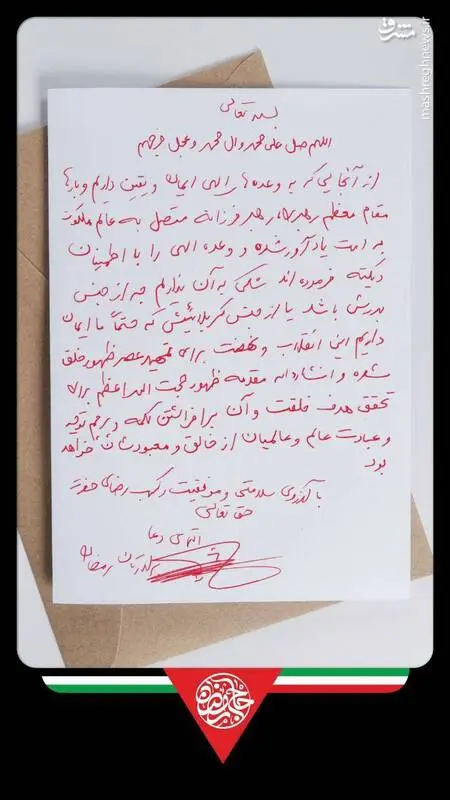 مشرق
mashreghnews.ir
بسمه تعالی
اللهم صل علی محمد وال محمد و عجل فرجهم
از آنجایی که به وعده های الهی ایمان و یقین داریم و بارها
مقام معظم رهبری، رهبر فرزانه متصل به عالم ملکوت
به امت یادآور شده و وعده الهی را با اطمینان
دیکته فرموده اند شکی به آن نداریم چه از جنس
بدرش باشد یا از جنس کربلائیش که حتماً ما ایمان
داریم این انقلاب و نهضت برای تمهید عصر ظهور خلق
شده و انشاءاله مقدمه ظهور حجت اله اعظم برای
تحقق هدف خلقت و آن برافراشتن کلمه و پرچم توحید
و عبادت عالم و عالمیان از خالق و معبودشان خواهد
بود
با آرزوی سلامتی و موفقیت و کسب رضای حضرت
حق تعالی
التماس دعا
حاج رمضان